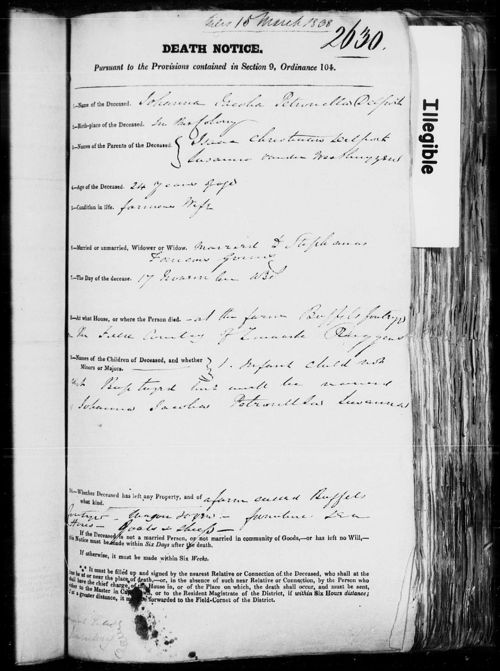 15 March 1838
2630.
DEATH NOTICE.
Pursuant to the Provisions contained in Section 9, Ordinance 104.
Illegible
1.—Name of the Deceased. Johanna Petronella Delport
2.—Birth-place of the Deceased. In the Colony
3.—Names of the Parents of the Deceased. Christiaan Delport
Susanna van der Westhuyzen
4.—Age of the Deceased. 24 Years
5.—Condition in life. farmers Wife
6.—Married or unmarried, Widower or Widow. Married to Stephanus
Gouws
7.—The Day of the decease. 17 November
8.—At what House, or where the Person died. at the farm Buffelsfontyn
the Field Cornetcy of Ruggens
9.—Names of the Children of Deceased, and whether
Minors or Majors. 1. Infant child not
Baptized but will be named
Johanna Jacoba Petronella Susanna
10.—Whether Deceased has left any Property, and of
what kind. a farm called Buffels
fontyn Wagon furniture
Goats & sheep
If the Deceased is not a married Person, or not married in community of Goods,—or has left no Will,—
this Notice must be made within Six Days after the death.
If otherwise, it must be made within Six Weeks.
It must be filled up and signed by the nearest Relative or Connection of the Deceased, who shall at the
time be at or near the place of death,—or, in the absence of such near Relative or Connection, by the Person who
shall have the chief charge of the House in, or of the Place on which, the death shall occur, and must be sent,
to the Master in or to the Resident Magistrate of the District, if within Six Hours distance;
at a greater distance, it forwarded to the Field-Cornet of the District.